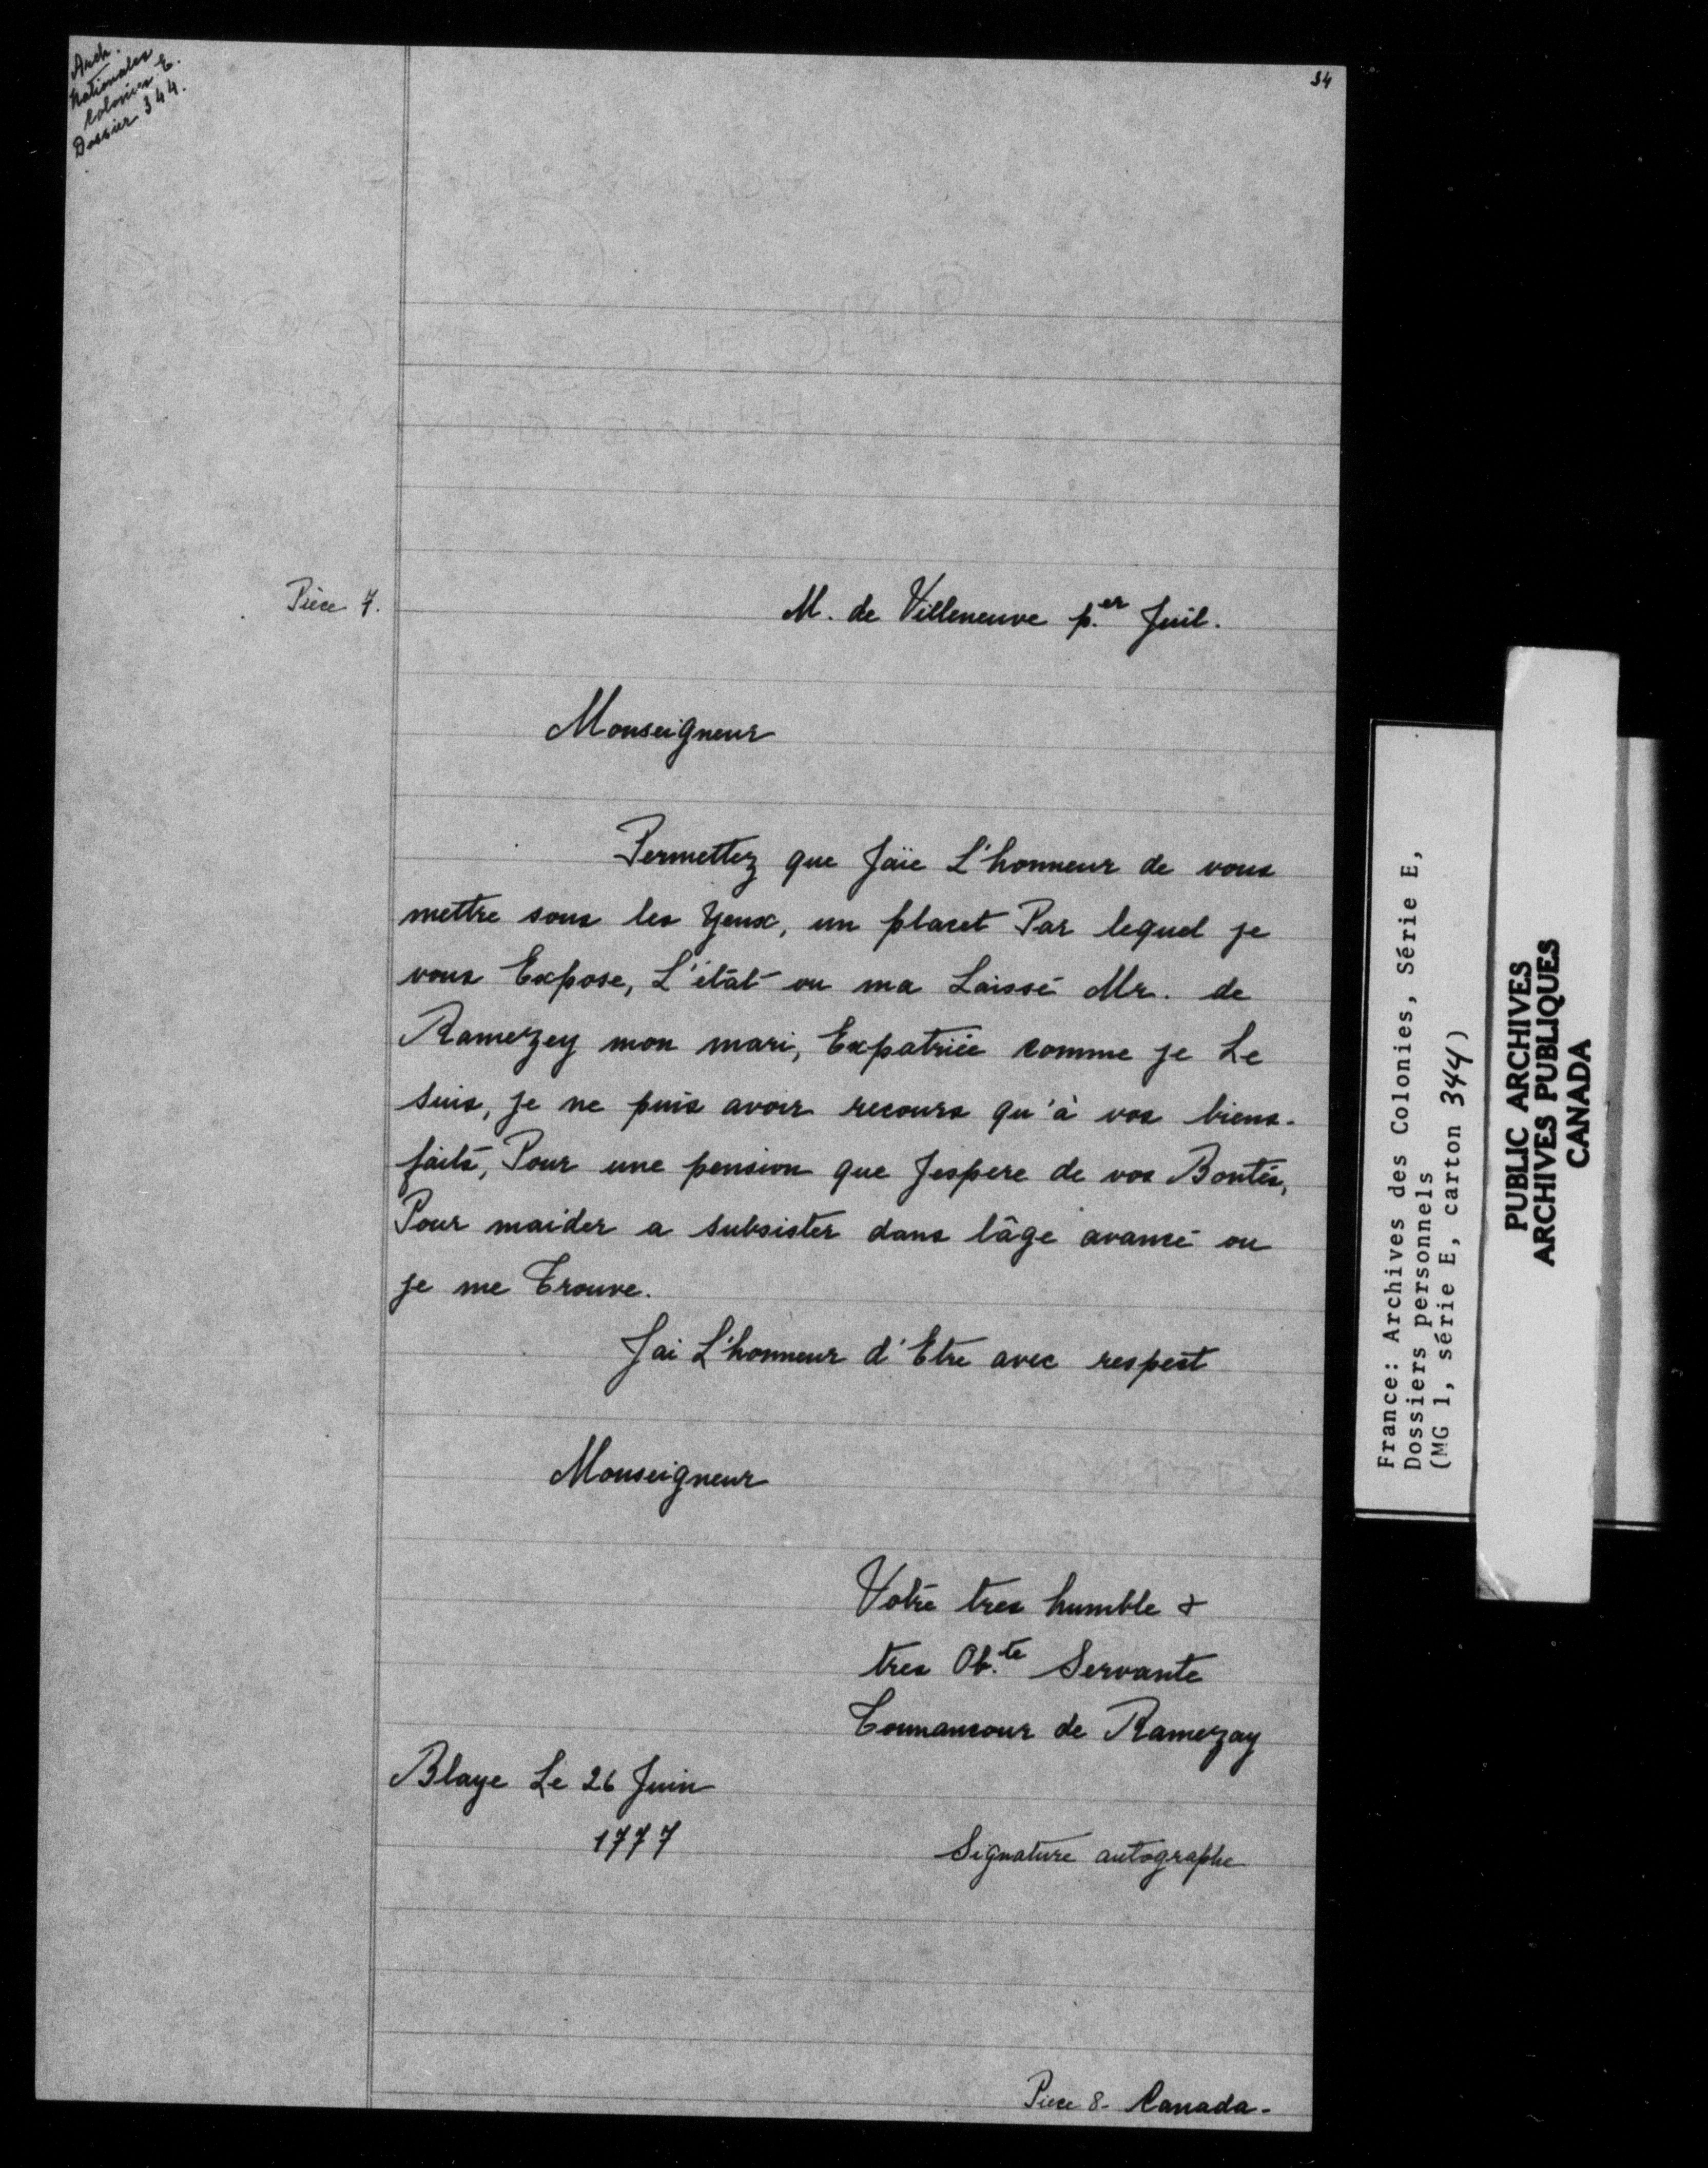 Arch.
Nationales
Colonies E.
Dossier 344.
34
Pièce 7.
M. de Villeneuve p.er Juil.
Monseigneur
Permettez que Jaïe L'honneur de vous
mettre sous les Yeux, un placet Par lequel je
vous Expose, L'étât ou ma Laissé Mr. de
Ramezey mon mari, Expatriée comme je Le
suis, je ne puis avoir recours qu'à vos biens-
faits, Pour une pension que Jespere de vos Bontés,
Pour maider a subsister dans lâge avancé ou
je me Trouve.
Jai L'honneur d'Etre avec respect
Monseigneur
Votre tres humble &
tres Ob.te Servante
Tonnancour de Ramezay
Blaye Le 26 Juin
1777
Signature autographe
Piece 8- Canada-
France: Archives des Colonies, Série E,
Dossiers personnels
(MG 1, série E, carton 344)
PUBLIC ARCHIVES
ARCHIVES PUBLIQUES
CANADA